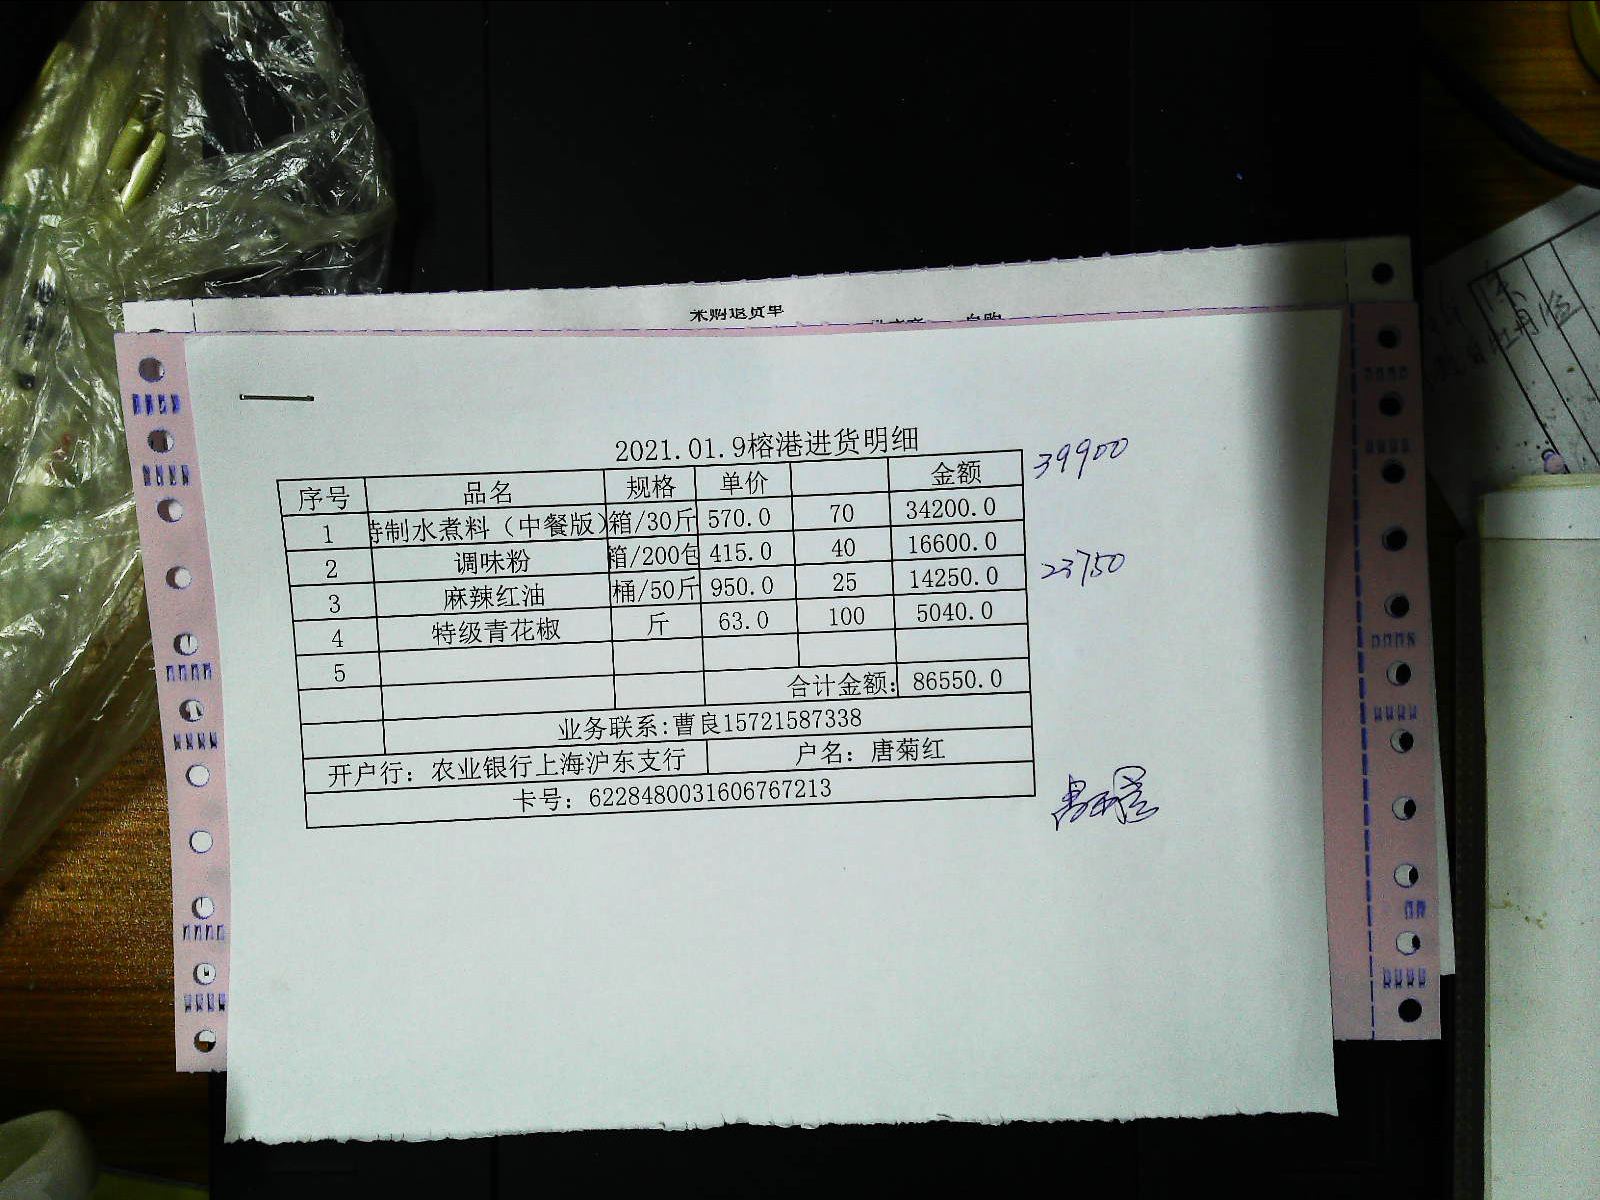 采购退货单
2021.01.9榕港进货明细
39900
序号 品名 规格 单价 金额
1 特制水煮料（中餐版） 箱/30斤 570.0 70 34200.0
2 调味粉 箱/200包 415.0 40 16600.0
23750
3 麻辣红油 桶/50斤 950.0 25 14250.0
4 特级青花椒 斤 63.0 100 5040.0
5
合计金额: 86550.0
业务联系:曹良15721587338
开户行: 农业银行上海沪东支行 户名: 唐菊红
卡号: 6228480031606767213